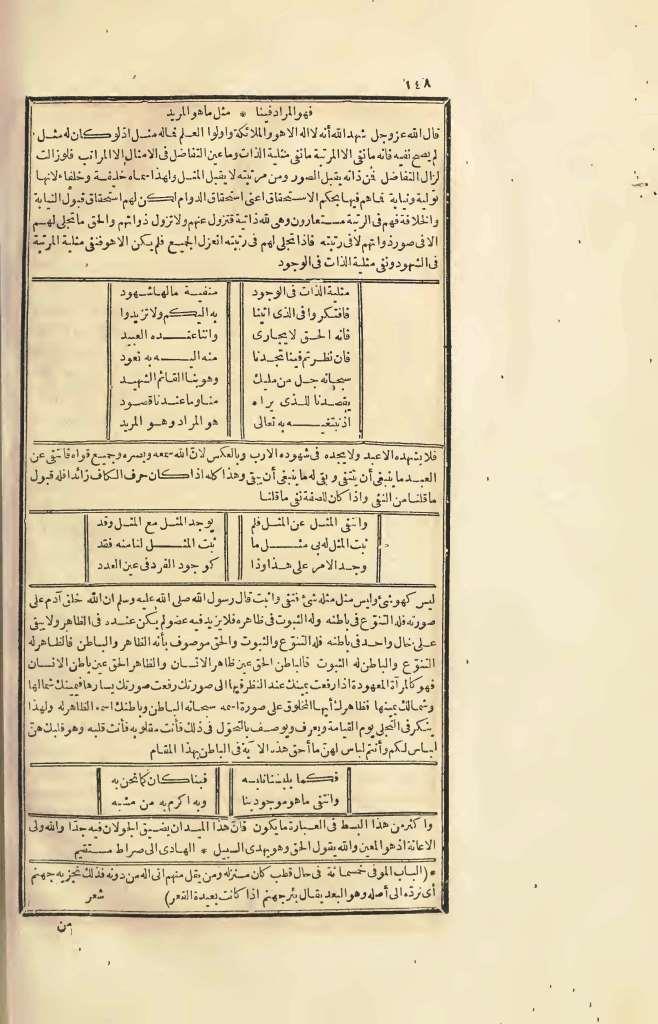 ١٤٨
فهو المراد فينا * مثل ما هو المريد
قال الله عز وجل شهد الله أنه لا اله الا هو والملائكة واولوا العلم فما له مثل اذ لو كان له مثل
لم يصح نفيه فانه ما نفى الا المرتبة ما نفى مثلية الذات وما عين التفاضل فى الامثال الا المراتب فلو زالت
لزال التفاضل فمن ذاته يقبل الصور ومن مرتبته لا يقبل المثل ولهذا سماه خليفة وخلفاء لانها
تولية ونيابة فما هم فيها بحكم الاستحقاق اعنى استحقاق الدوام لكن لهم استحقاق قبول النيابة
والخلافة فهم فى الرتبة مستعارون وهى لله ذاتية فتزول عنهم ولا تزول ذواتهم والحق ما تجلى لهم
الا فى صور ذواتهم لا فى رتبته فاذا تجلى لهم فى رتبته انعزل الجميع فلم يكن الا هو فنفى مثلية المرتبة
فى الشهود ونفى مثلية الذات فى الوجود
مثلية الذات فى الوجود منفية مالها شهود
فافتكروا فى الذى اتينا به اليكم ولا تزيدوا
فانه الحق لا يجارى واننا عنده العبيد
فان نظرتم فينا تجدنا منه اليه به نعود
سبحانه جل من مليك وهو بنا القائم الشهيد
يقصدنا للذى يراه منا وما عندنا قصود
اذ نبتغيه به تعالى هو المراد وهو المريد
فلا يشهده الا عبد ولا يجده فى شهوده الا رب وبالعكس لان الله سمعه وبصره وجميع قواه فانتفى عن
العبد ما ينبغى أن ينتفى وبقى له ما ينبغى أن يبقى وهذا كله اذا كان حرف الكاف زائدا فله قبول
ما قلنا من النفى واذا كان للصفة نفى ما قلنا
وانتفى المثل عن المثل فلم يوجد المثل مع المثل وقد
ثبت المثل له بى مثل ما ثبت المثل لنا منه فقد
وجد الامر على هذا وذا كوجود الفرد فى عين العدد
ليس كهو شئ وليس مثل مثله شئ فنفى واثبت قال رسول الله صلى الله عليه وسلم ان الله خلق آدم على
صورته فله التنوّع فى باطنه وله الثبوت فى ظاهره فلا يزيد فيه عضو لم يكن عنده فى الظاهر ولا يبقى
على حال واحد فى باطنه فله التنوّع والثبوت والحق موصوف بأنه الظاهر والباطن فالظاهر له
التنوّع والباطن له الثبوت فالباطن الحق عين ظاهر الانسان والظاهر الحق عين باطن الانسان
فهو كالمرآة المعهودة اذا رفعت يمينك عند النظر فيها الى صورتك رفعت صورتك يسارها فيمينك شمالها
وشمالك يمينها فظاهرك أيها المخلوق على صورة اسمه سبحانه الباطن وباطنك اسمه الظاهر له ولهذا
ينكر فى التجلى يوم القيامة ويعرف ويوصف بالتحوّل فى ذلك فأنت مقلوبه فأنت قلبه وهو قلبك هنّ
لباس لكم وأنتم لباس لهنّ ما أحق هذه الآية فى الباطن بهذا المقام
فكما يلبسنا نلبسه فبنا كان كما نحن به
وانتفى ما هو موجود بنا وبه اكرم به من مشبه
واكثر من هذا البسط فى العبارة ما يكون فان هذا الميدان يضيق الجولان فيه جدا والله ولى
الاعانة اذ هو المعين والله يقول الحق وهو يهدى السبيل * الهادى الى صراط مستقيم
* (الباب الموفى خمسمائة فى حال قطب كان منزله ومن يقل منهم انى اله من دونه فذلك نجزيه جهنم
أى نردّه الى أصله وهو البعد يقال بئر جهنم اذا كانت بعيدة القعر) شعر
من